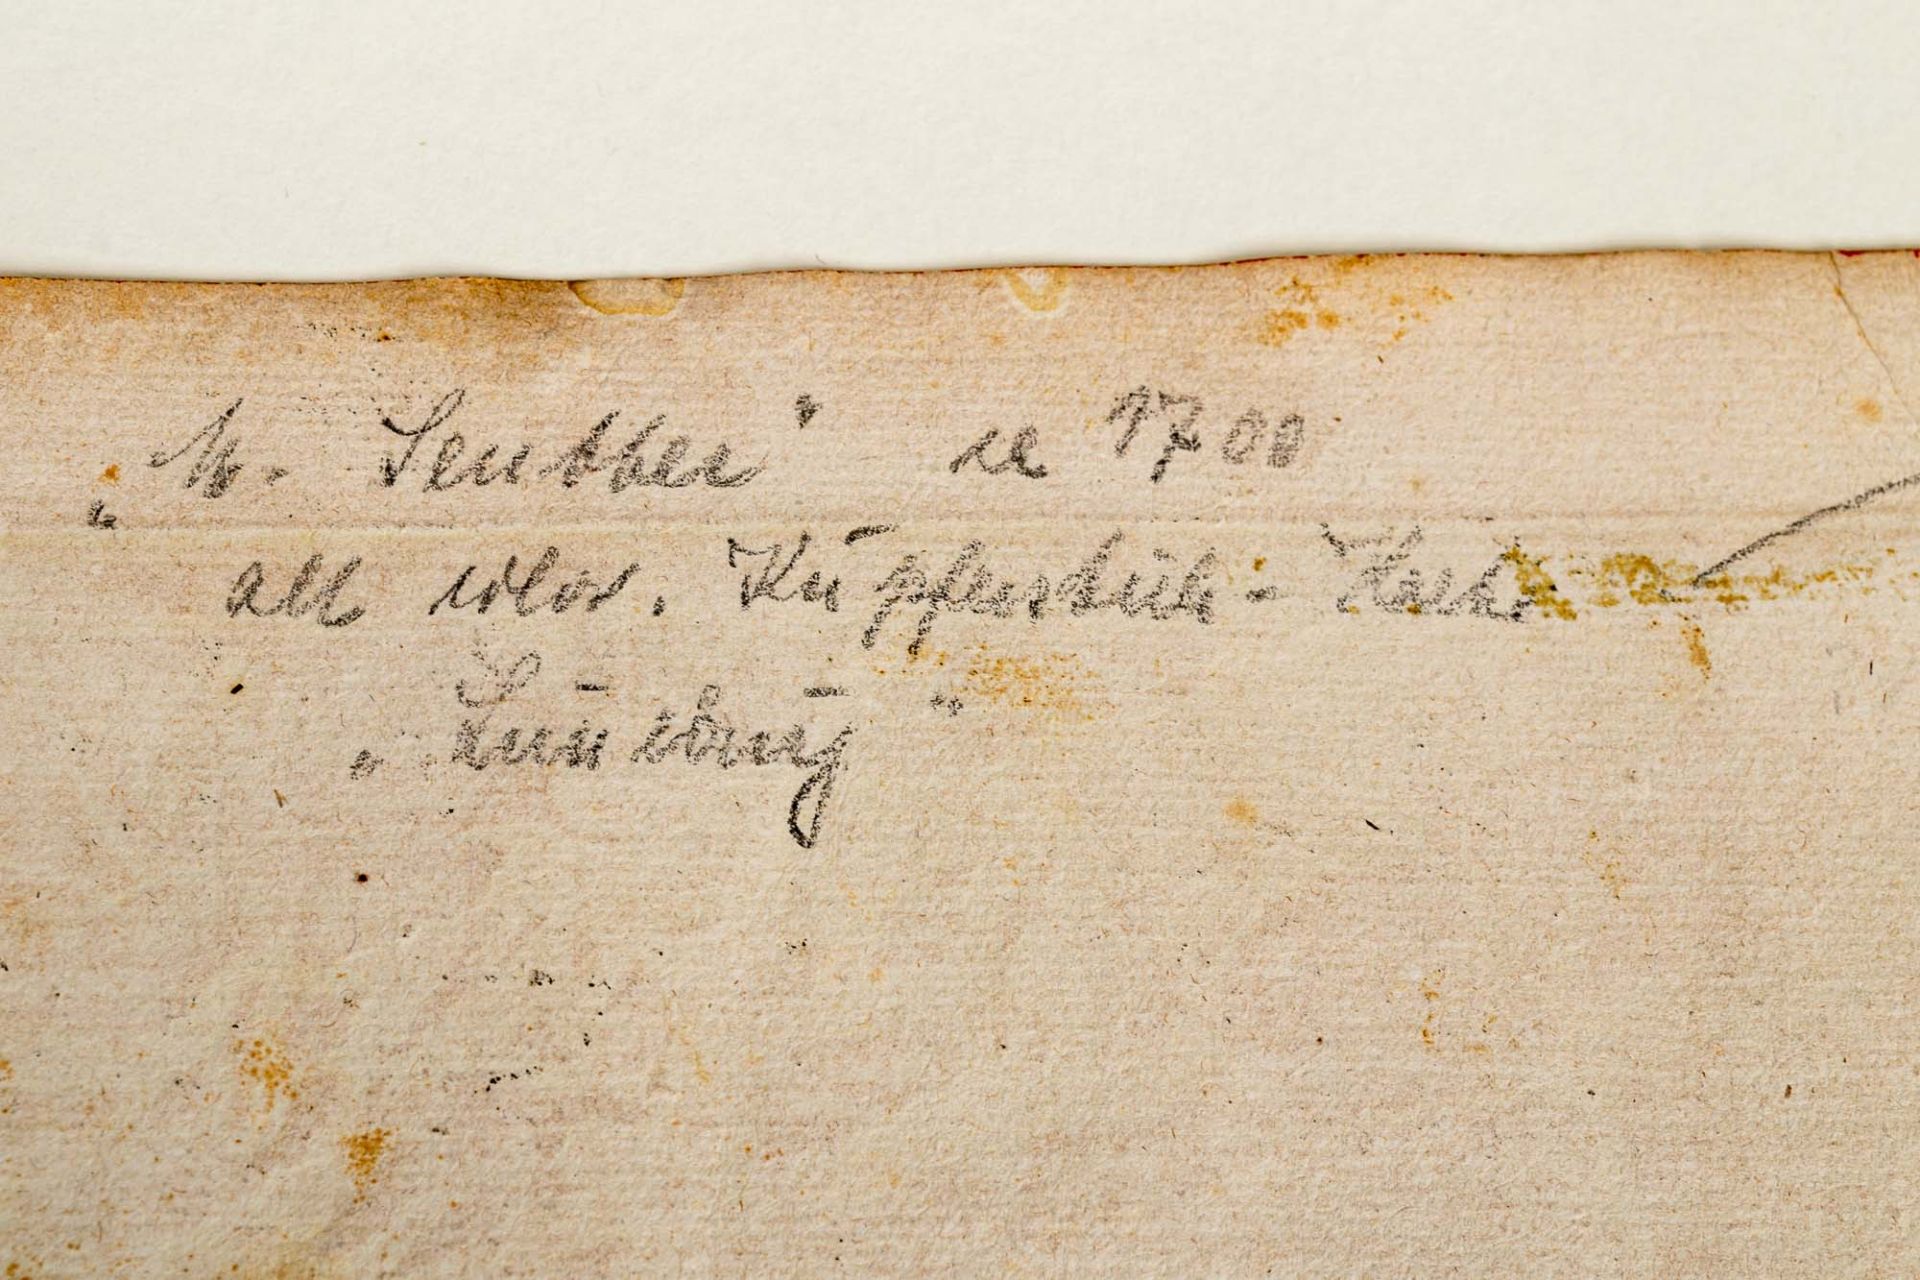 „M. Seutter" ca 1700
alt color. Kupferstich - Karte
„Lüneburg"